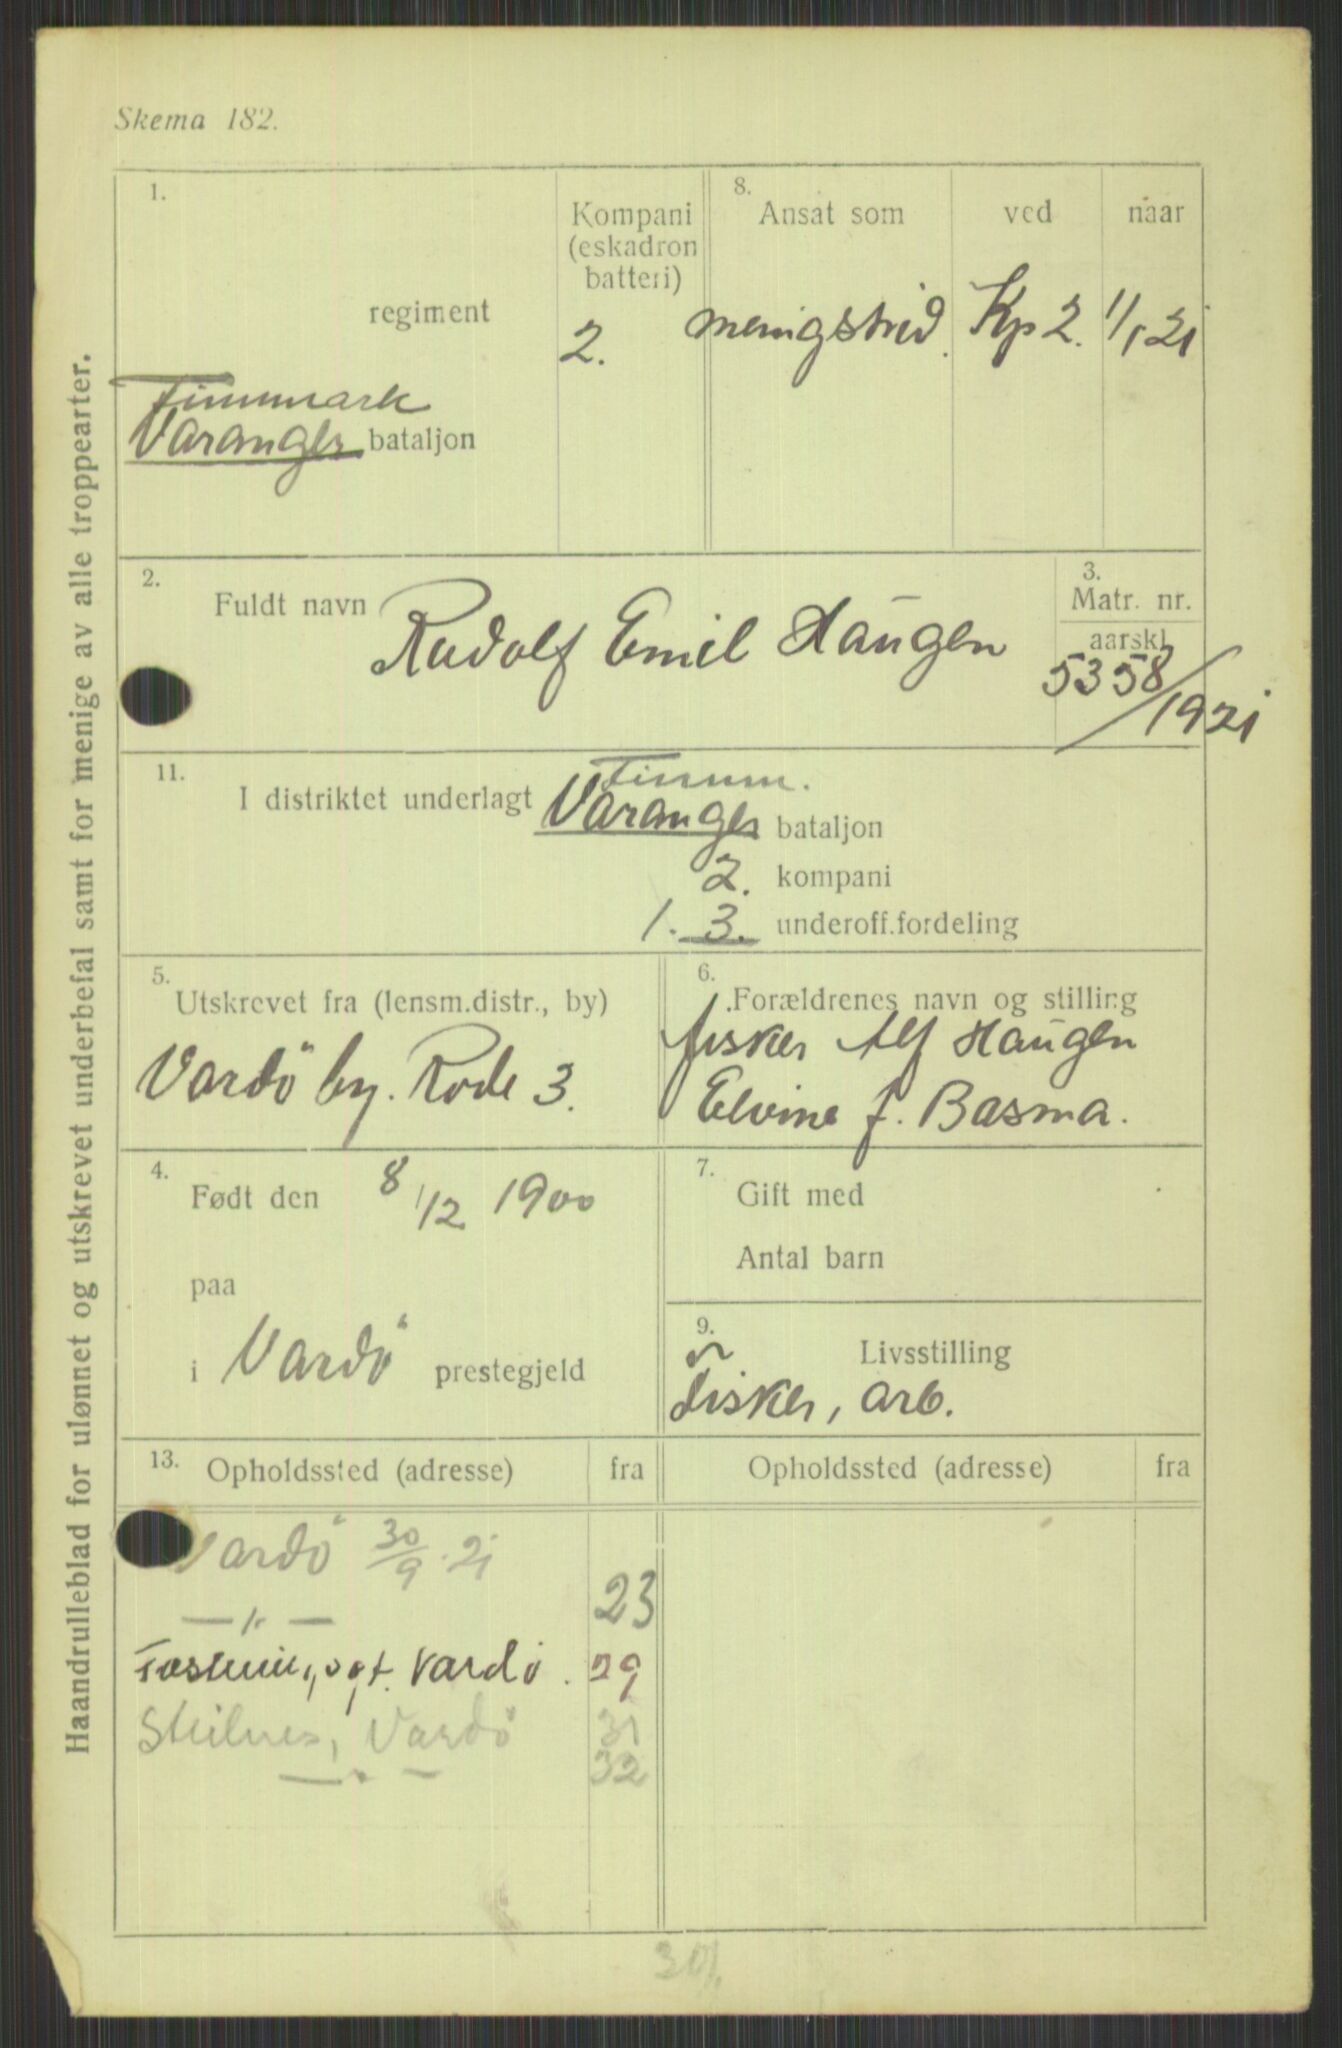 Skema 182.
Haandrulleblad for ulønnet og utskrevet underbefal samt for menige av alle troppearter.
1.
regiment
Finnmark
Varanger bataljon
Kompani
(eskadron
batteri)
2.
8.
Ansat som
ved
naar
menigstrid. Kp 2. 1/1 21
2.
Fuldt navn Rudolf Emil Haugen
3.
Matr. nr.
aarskl.
5358/1921
11.
Finnm.
I distriktet underlagt Varanger bataljon
2. kompani
1. 3. underoff.fordeling
5.
Utskrevet fra (lensm.distr., by)
Vardö by. Rode 3.
6.
Forældrenes navn og stilling
fisker Alf Haugen
Elvine f. Basma.
4.
Født den 8/12 1900
paa
i Vardö prestegjeld
7.
Gift med
Antal barn
9.
Livsstilling
fisker, arb.
13.
Opholdssted (adresse) fra
Opholdssted (adresse) fra
Vardö 30/9.21
— " — 23
Vardö. 29
Vardö 31
— " — 32